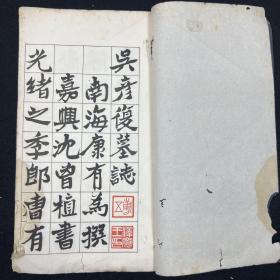 吳彥復墓誌
南海康有為撰
嘉興沈曾植書
光緒之季郎曹有